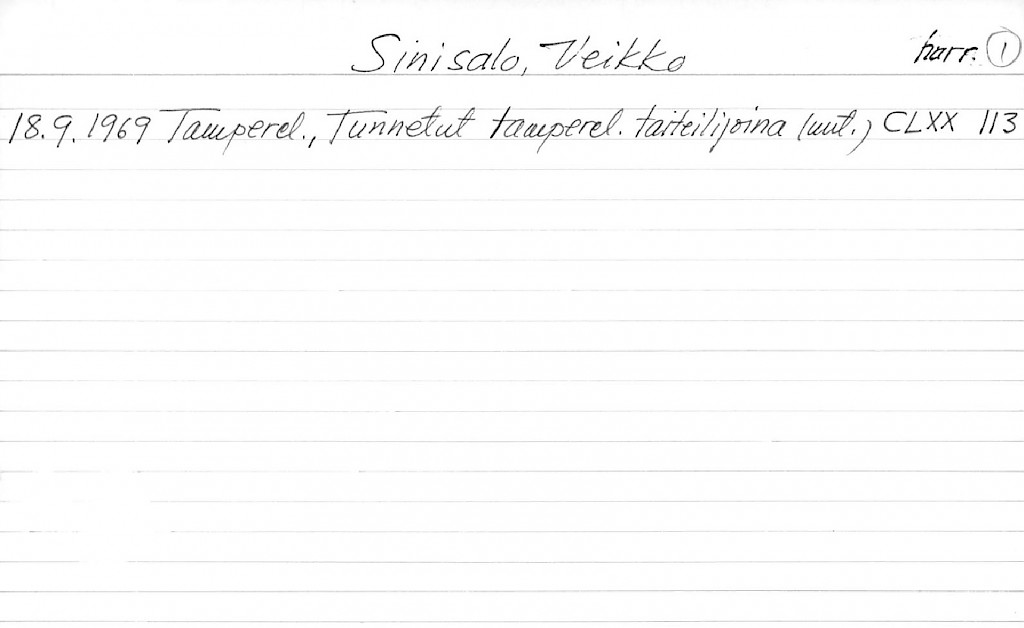 Sinisalo, Veikko harr. 1
18.9.1969 Tamperel., Tunnetut tamperel. taiteilijoina (uut.) CLXX 113